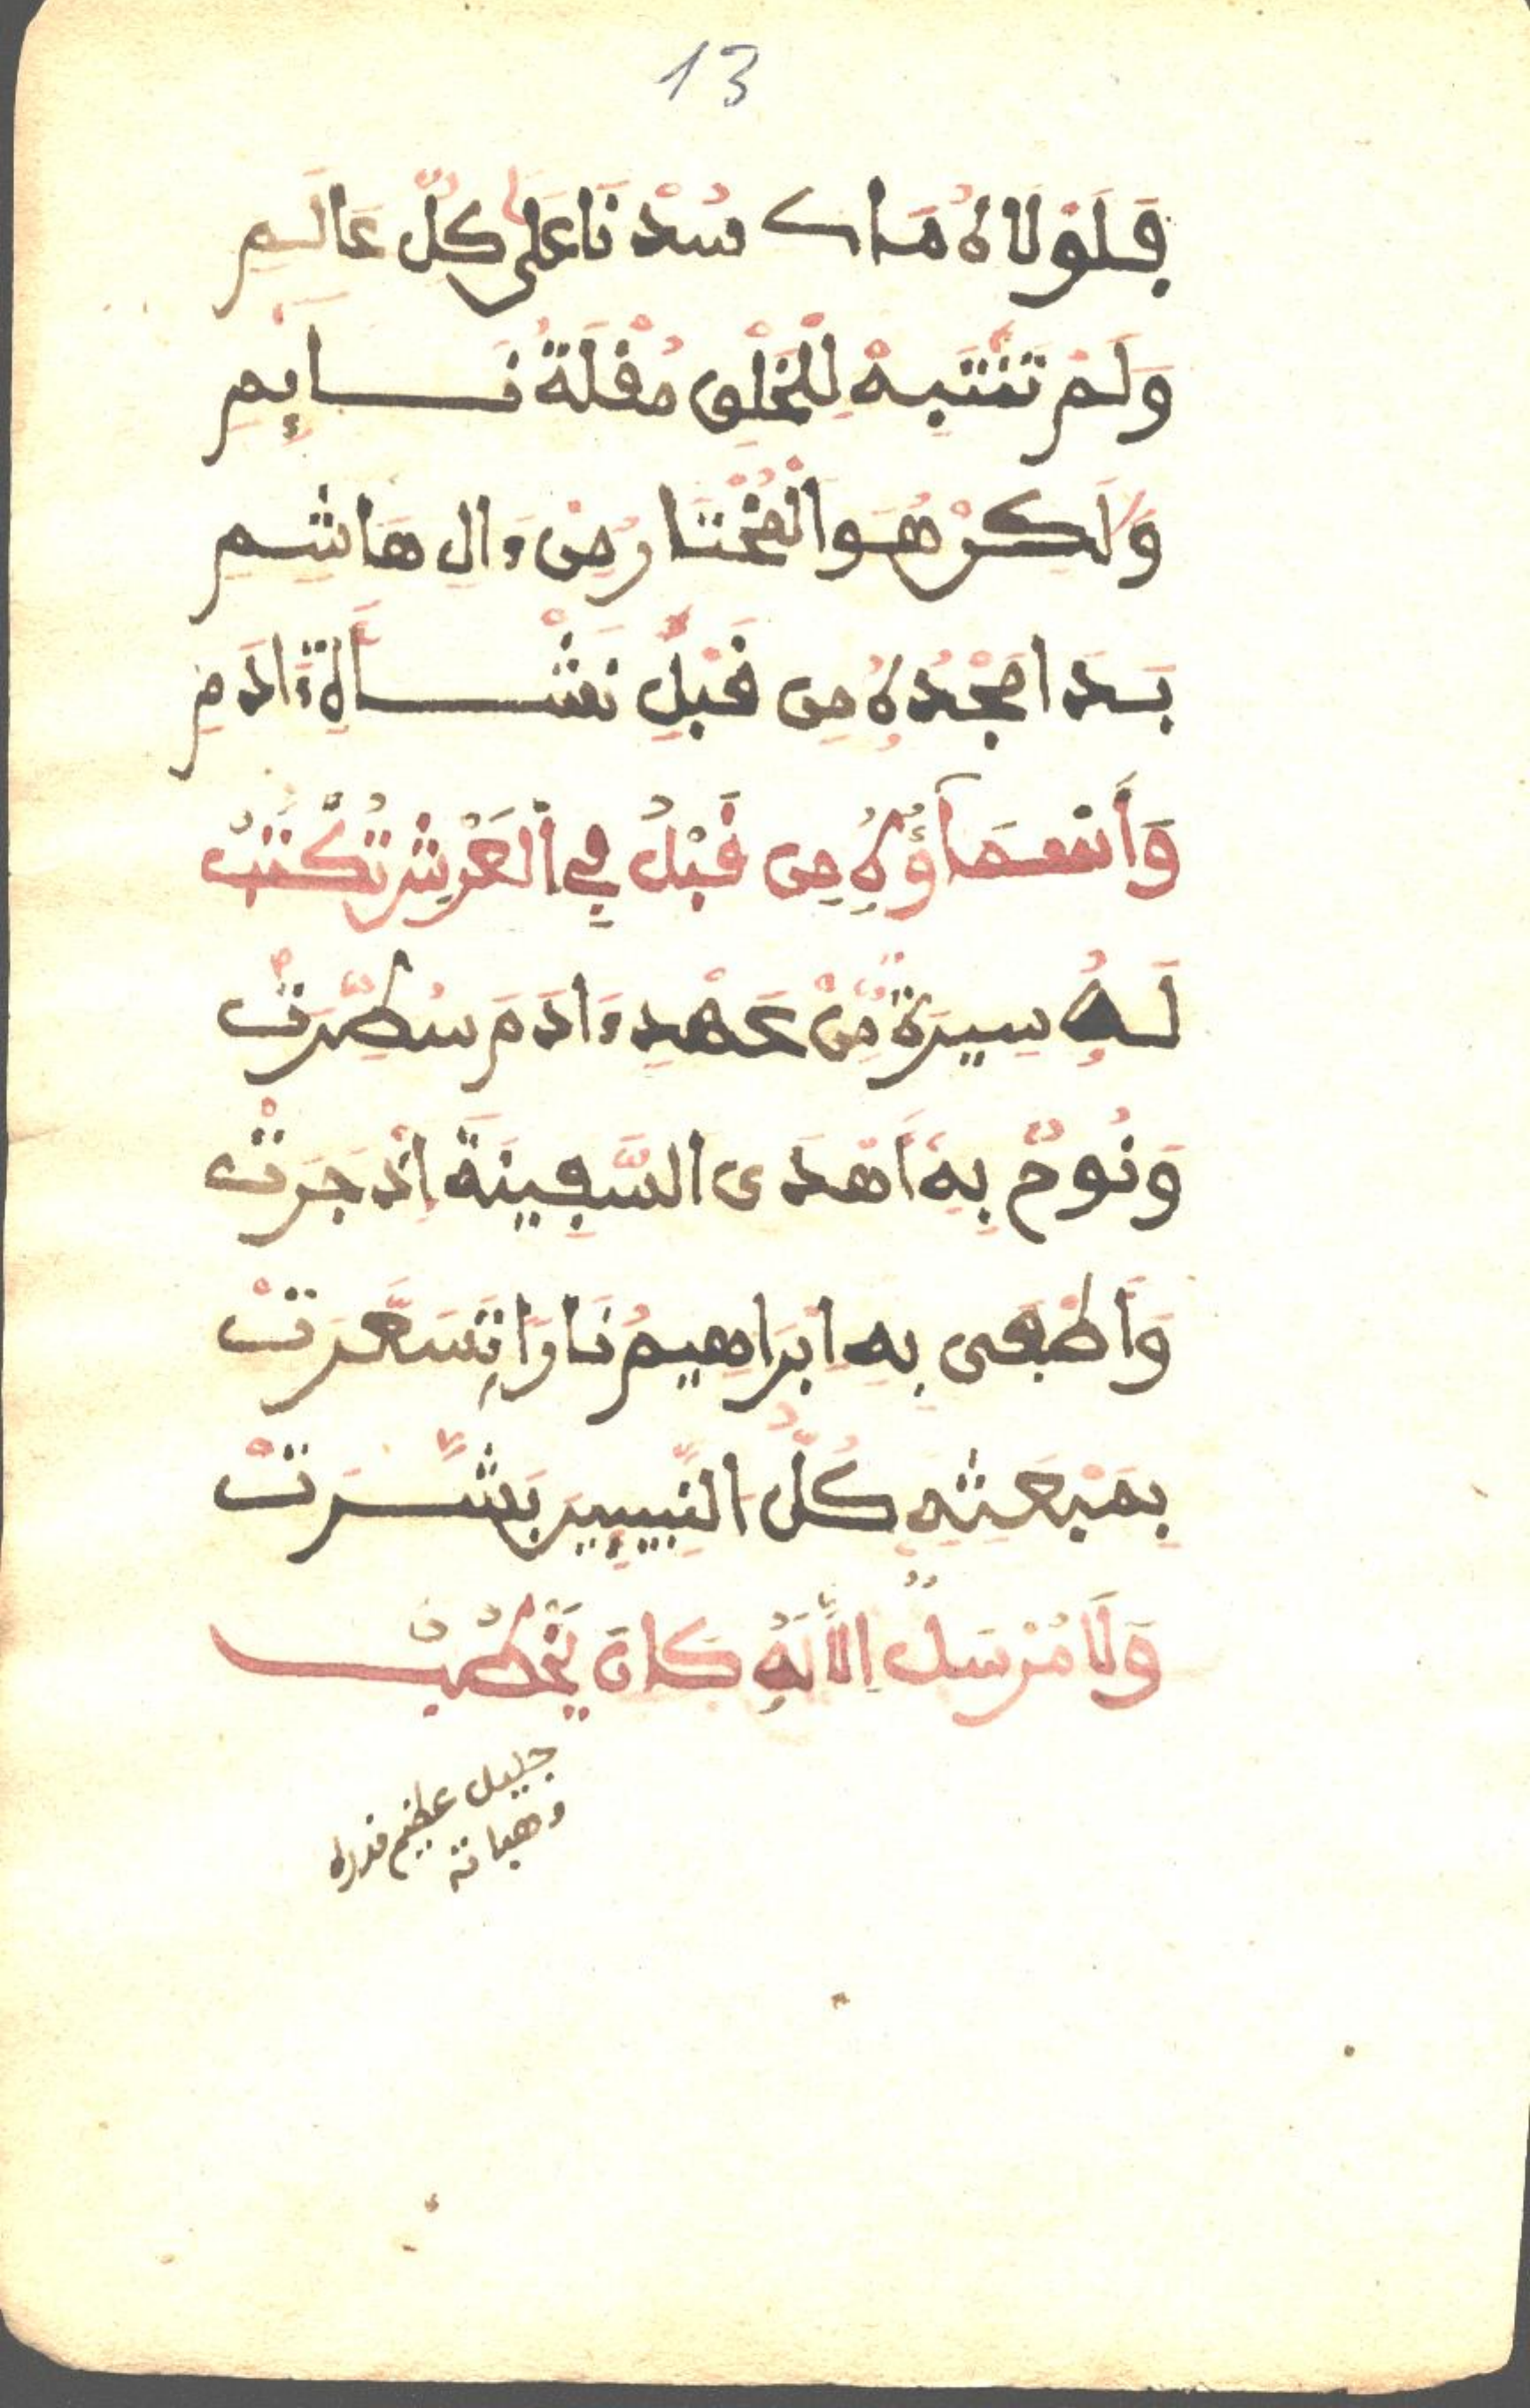 13
فَلَوْلَاهُ مَا كُنَّا سُدْنَا عَلَى كُلِّ عَالَمِ
وَلَمْ تَنْتَبِهْ لِلْخَلْقِ مُقْلَةُ نَايِمِ
وَلَكِنْ هُوَ الْمُخْتَارُ مِنْ ءَالِ هَاشِمِ
بَدَا مَجْدُهُ مِن قَبْلِ نَشْأَةِ ءَادَمِ
وَأَسْمَاؤُهُ مِن قَبْلُ فِي الْعَرْشِ تُكْتَبُ
لَهُ سِيرَةٌ مِّنْ عَهْدِ ءَادَمَ سُطِّرَتْ
وَنُوحٌ بِهِ أَهْدَى السَّفِينَةَ إِذْ جَرَتْ
وَأَطْفَى بِهِ إِبْرَاهِيمُ نَارًا تَسَعَّرَتْ
بِمَبْعَثِهِ كُلُّ النَّبِيِّينَ بَشَّرَتْ
وَلَا مُرْسَلٌ إِلَّا لَهُ كَانَ يَخْطُبُ
جليل عظيم قدره
وهباته